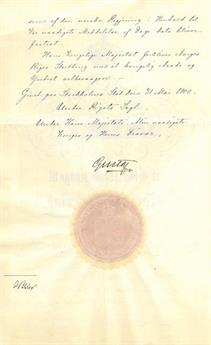 som af den norske Regjering i Henhold til
den naadigste Meddelelse af Dags Dato bliver
fattet.
Hans Kongelige Majestæt forbliver Norges
Riges Storthing med al kongelig Naade og
Yndest velbevaagen.
Givet paa Stockholms Slot den 31 Mai 1900.
Under Rigets Segl.
Under Hans Majestæts Min naadigste
Konges og Herres Fravær.
Gustaf.